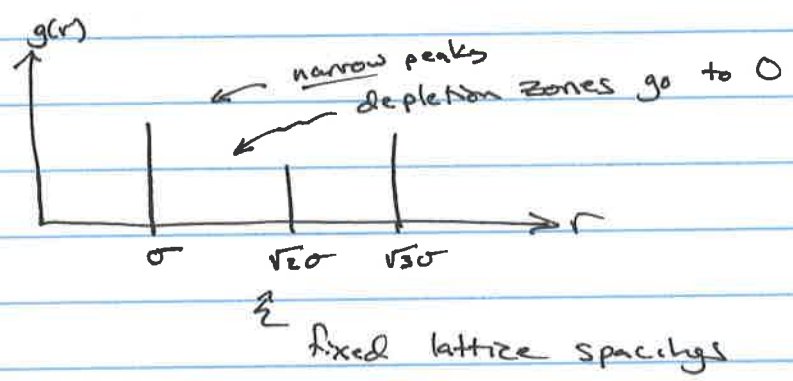 g(r)
narrow peaks
depletion zones go to 0
r
σ √2σ √3σ
fixed lattice spacings